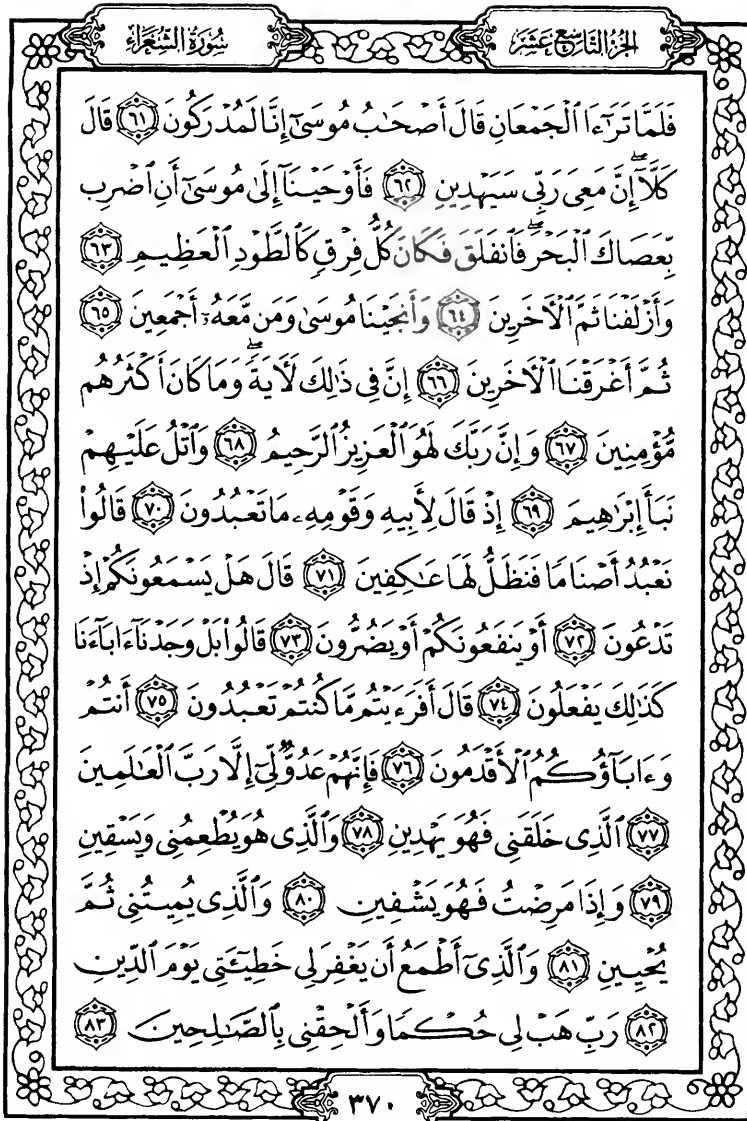 سُورَةُ الشُّعَرَاءِ الجُزْءُ التَّاسِعَ عَشَرَ
فَلَمَّا تَرَٰٓءَا ٱلْجَمْعَانِ قَالَ أَصْحَٰبُ مُوسَىٰٓ إِنَّا لَمُدْرَكُونَ ٦١ قَالَ
كَلَّآۖ إِنَّ مَعِىَ رَبِّى سَيَهْدِينِ ٦٢ فَأَوْحَيْنَآ إِلَىٰ مُوسَىٰٓ أَنِ ٱضْرِب
بِّعَصَاكَ ٱلْبَحْرَۖ فَٱنفَلَقَ فَكَانَ كُلُّ فِرْقٍ كَٱلطَّوْدِ ٱلْعَظِيمِ ٦٣
وَأَزْلَفْنَا ثَمَّ ٱلْءَاخَرِينَ ٦٤ وَأَنجَيْنَا مُوسَىٰ وَمَن مَّعَهُۥٓ أَجْمَعِينَ ٦٥
ثُمَّ أَغْرَقْنَا ٱلْءَاخَرِينَ ٦٦ إِنَّ فِى ذَٰلِكَ لَءَايَةًۖ وَمَا كَانَ أَكْثَرُهُم
مُّؤْمِنِينَ ٦٧ وَإِنَّ رَبَّكَ لَهُوَ ٱلْعَزِيزُ ٱلرَّحِيمُ ٦٨ وَٱتْلُ عَلَيْهِمْ
نَبَأَ إِبْرَٰهِيمَ ٦٩ إِذْ قَالَ لِأَبِيهِ وَقَوْمِهِۦ مَا تَعْبُدُونَ ٧٠ قَالُوا۟
نَعْبُدُ أَصْنَامًا فَنَظَلُّ لَهَا عَٰكِفِينَ ٧١ قَالَ هَلْ يَسْمَعُونَكُمْ إِذْ
تَدْعُونَ ٧٢ أَوْ يَنفَعُونَكُمْ أَوْ يَضُرُّونَ ٧٣ قَالُوا۟ بَلْ وَجَدْنَآ ءَابَآءَنَا
كَذَٰلِكَ يَفْعَلُونَ ٧٤ قَالَ أَفَرَءَيْتُم مَّا كُنتُمْ تَعْبُدُونَ ٧٥ أَنتُمْ
وَءَابَآؤُكُمُ ٱلْأَقْدَمُونَ ٧٦ فَإِنَّهُمْ عَدُوٌّ لِّىٓ إِلَّا رَبَّ ٱلْعَٰلَمِينَ
٧٧ ٱلَّذِى خَلَقَنِى فَهُوَ يَهْدِينِ ٧٨ وَٱلَّذِى هُوَ يُطْعِمُنِى وَيَسْقِينِ
٧٩ وَإِذَا مَرِضْتُ فَهُوَ يَشْفِينِ ٨٠ وَٱلَّذِى يُمِيتُنِى ثُمَّ
يُحْيِينِ ٨١ وَٱلَّذِىٓ أَطْمَعُ أَن يَغْفِرَ لِى خَطِيٓـَٔتِى يَوْمَ ٱلدِّينِ
٨٢ رَبِّ هَبْ لِى حُكْمًا وَأَلْحِقْنِى بِٱلصَّٰلِحِينَ ٨٣
٣٧٠